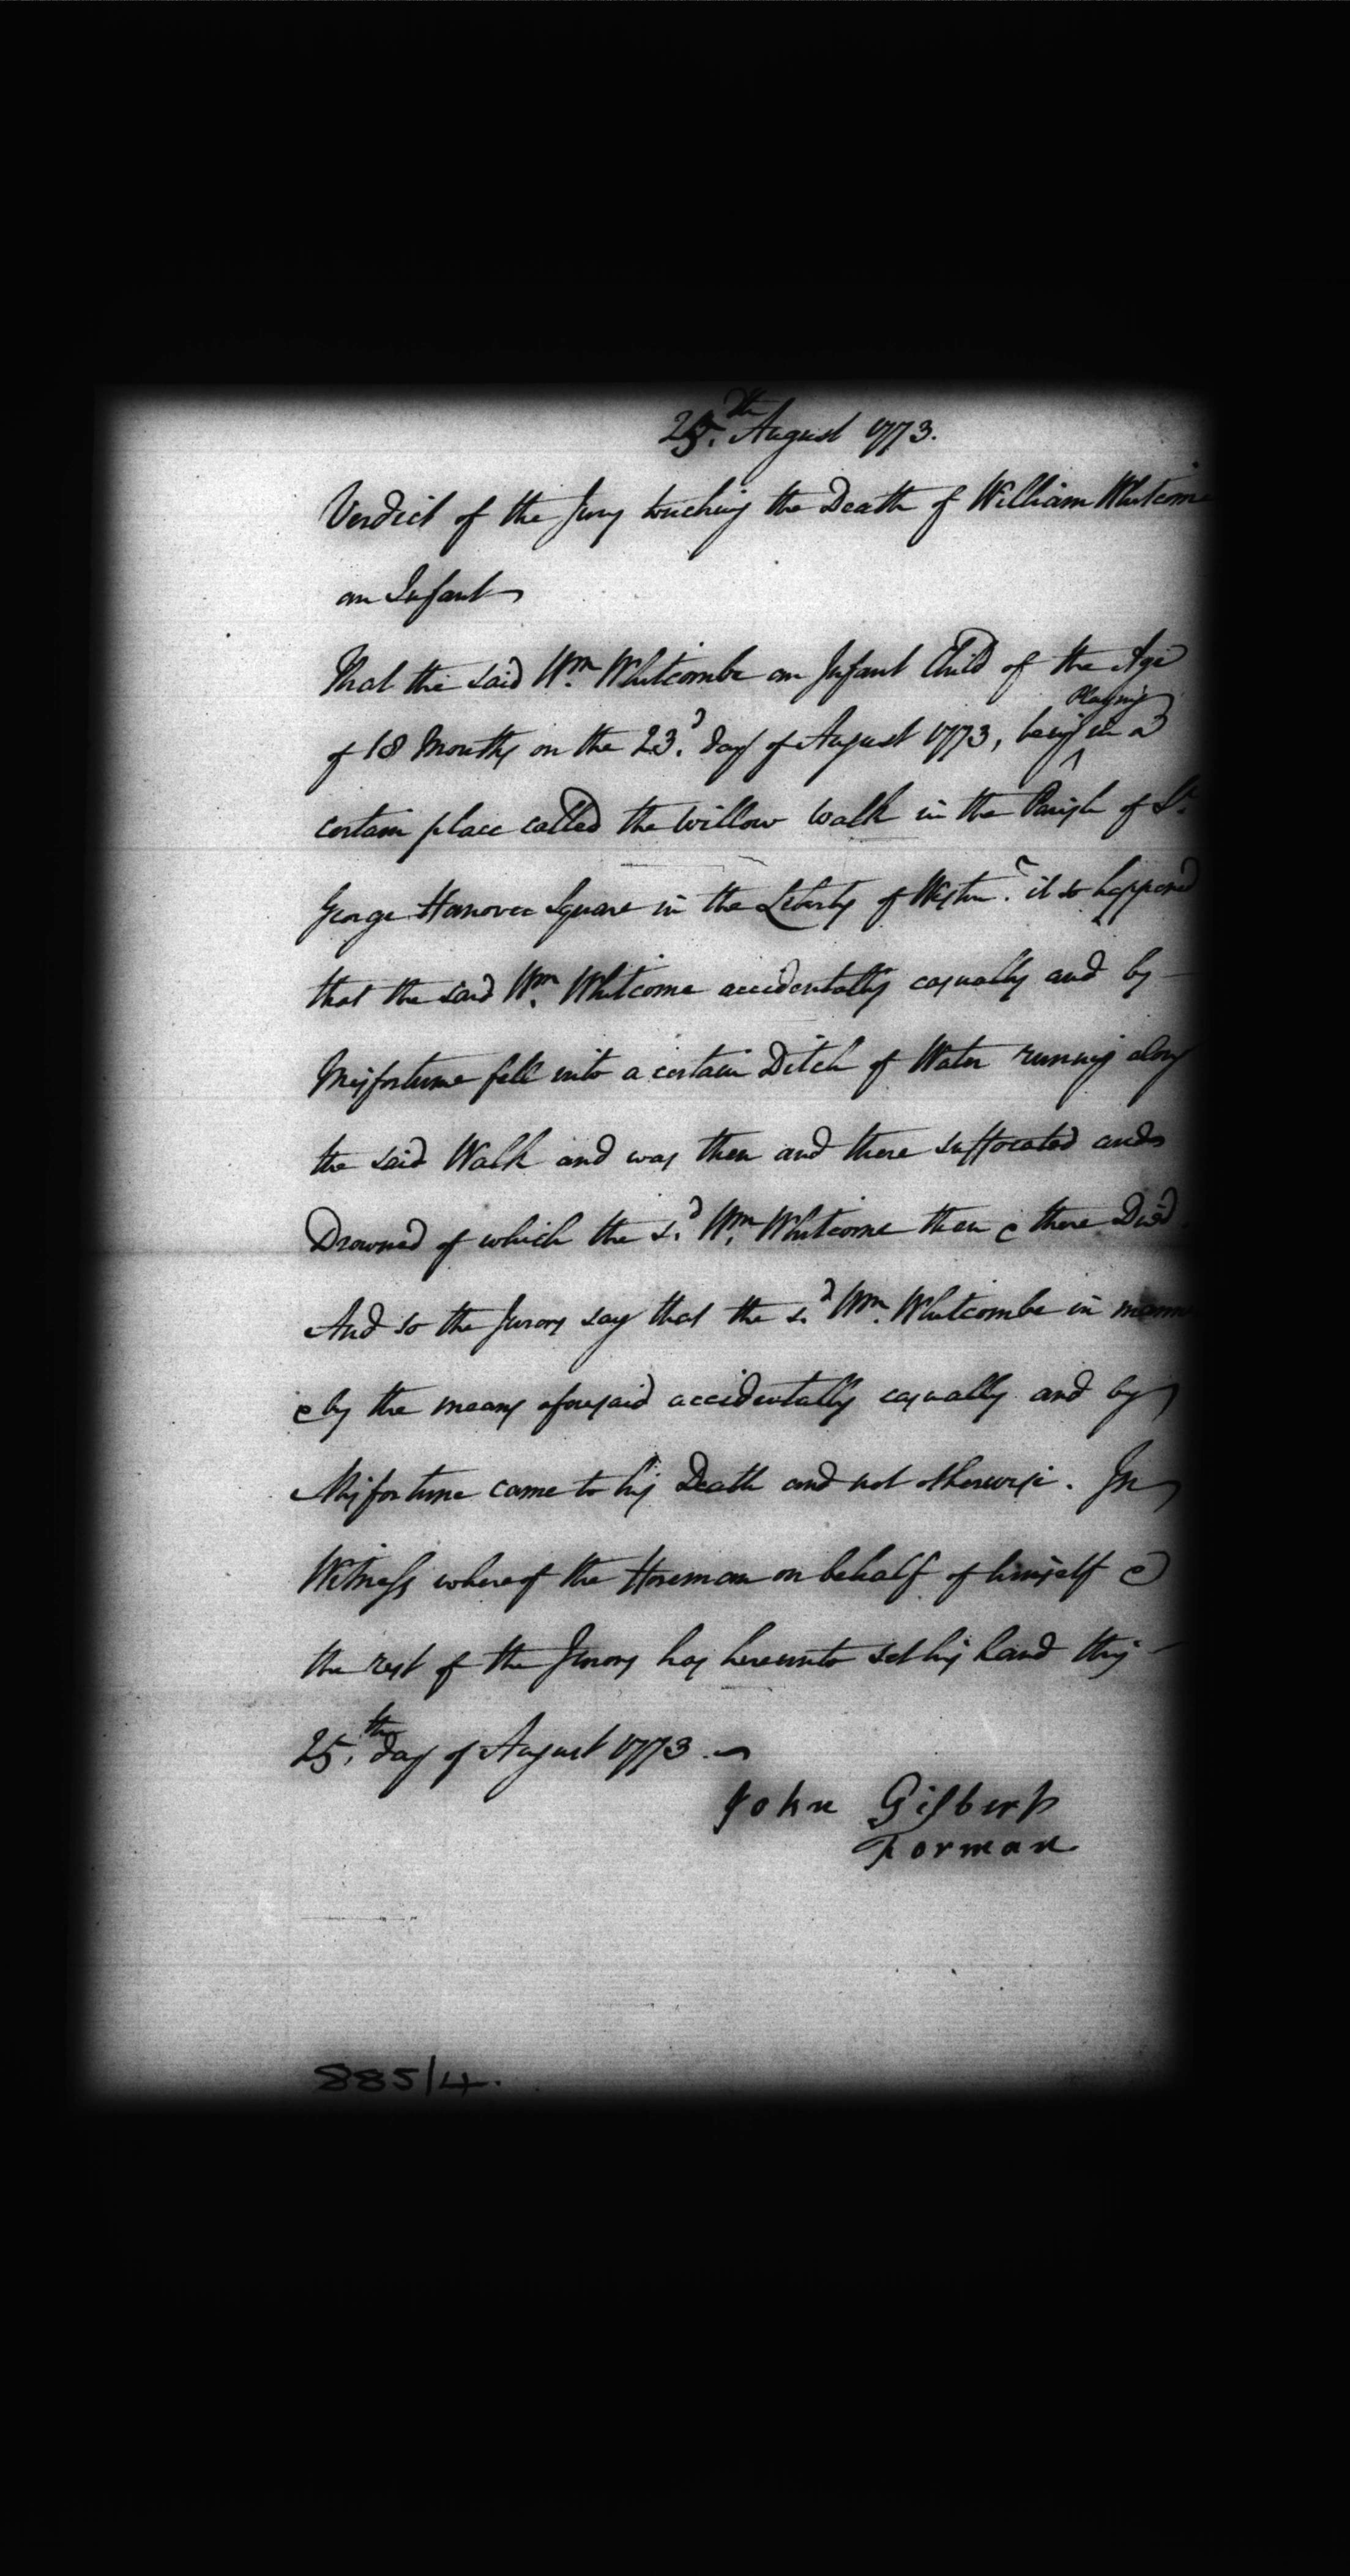 25.th August 1773.
Verdict of the Jury touching the Death of William Whitcome
an Infant
That the said Wm. Whitcombe an Infant Child of the Age
of 18 Months on the 23.d day of August 1773, being Playing in a
certain place called the Willow Walk in the Parish of St.
George Hanover Square in the Liberty of Westmr. it so happened
that the said Wm. Whitcome accidentally casually and by
Misfortune fell into a certain Ditch of Water running along
the said Walk and was then and there suffocated and
Drowned of which the s.d Wm. Whitcome then & there Died.
And so the Jurors say that the s.d Wm. Whitcombe in manner
& by the means aforesaid accidentally casually and by
Misfortune came to his Death and not otherwise. In
Witness whereof the Foreman on behalf of himself &
the rest of the Jurors has hereunto set his hand this
25.th day of August 1773.
John Gilbert
Forman
885/4.